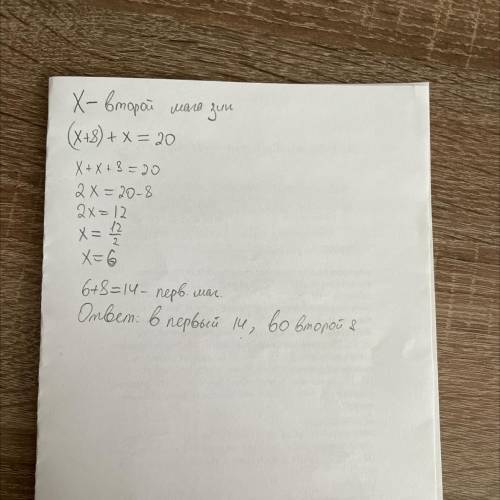 X – второй магазин
(x+8) + x = 20
x + x + 8 = 20
2x = 20-8
2x = 12
x = 12/2
x = 6
6+8=14 – перв. маг.
Ответ: в первый 14, во второй 8